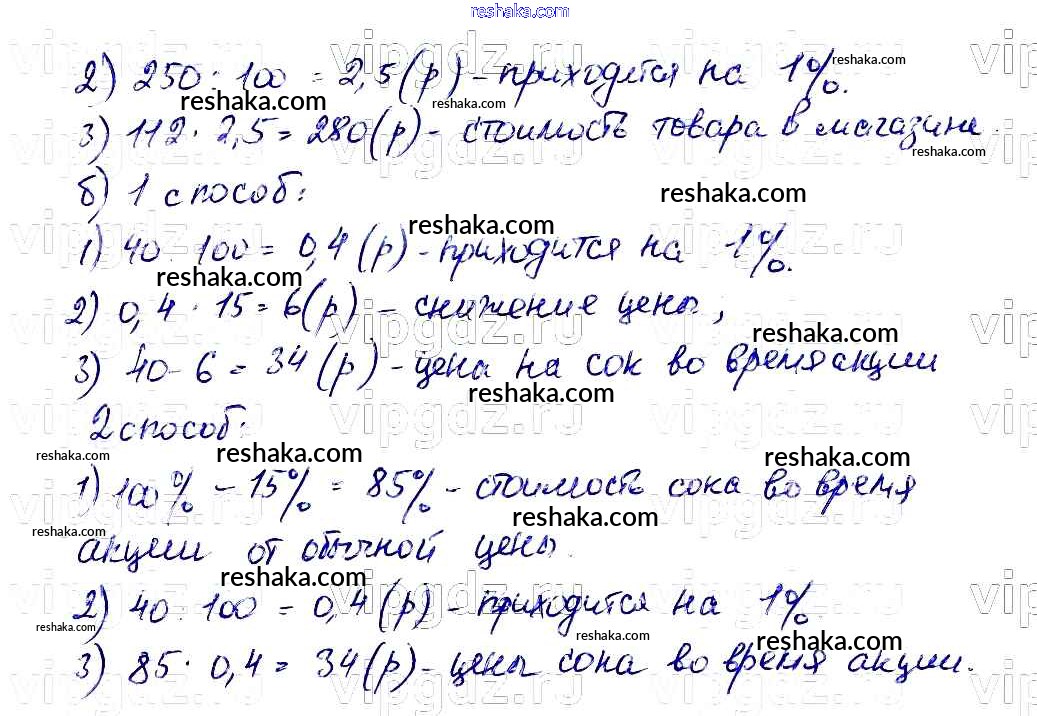 reshaka.com
2) 250 : 100 = 2,5 (р) - приходится на 1%.
3) 112 · 2,5 = 280 (р) - стоимость товара в магазине.
б) 1 способ:
1) 40 : 100 = 0,4 (р) - приходится на 1%.
2) 0,4 · 15 = 6 (р) - снижение цены;
3) 40 - 6 = 34 (р) - цена на сок во время акции
2 способ:
1) 100% - 15% = 85% - стоимость сока во время
акции от обычной цены.
2) 40 : 100 = 0,4 (р) - приходится на 1%
3) 85 · 0,4 = 34 (р) - цены сока во время акции.